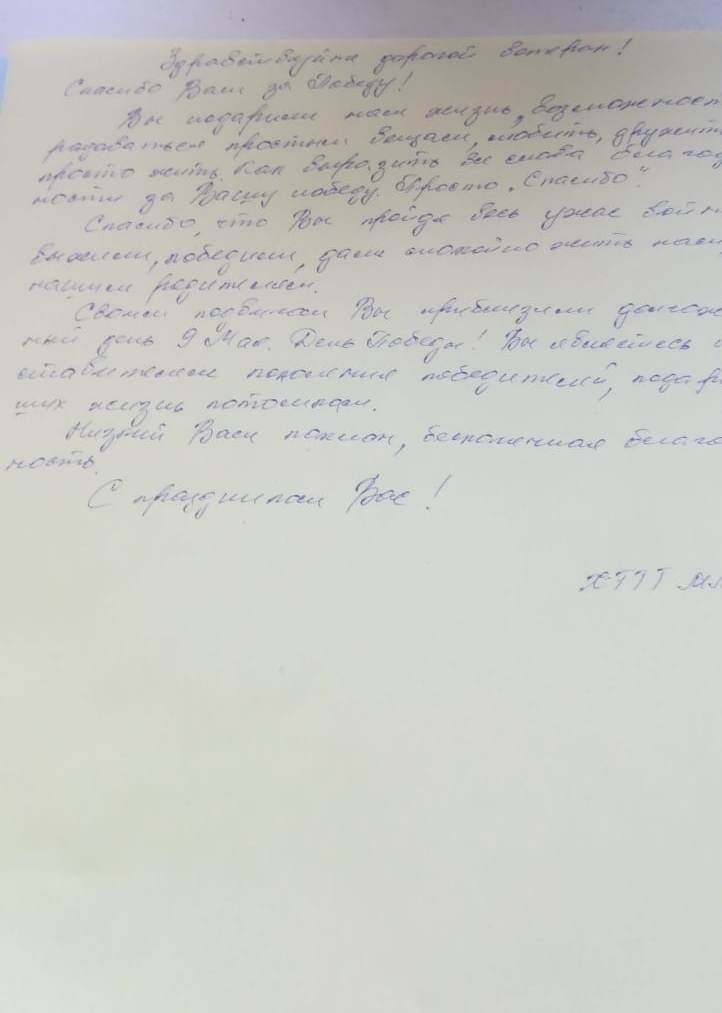 Здравствуйте дорогой ветеран!
Спасибо Вам за Победу!
Вы подарили нам жизнь, возможност
радоваться простым вещам, любить, дружит
просто жить. Как выразить все слова благод
ности за Вашу победу. Просто „Спасибо".
Спасибо, что Вы пройдя весь ужас войн
выжили, победили, дали спокойно жить нам,
нашим родителям.
Своим подвигом Вы приблизили долгож
ный день 9 Мая. День Победы! Вы являетесь
ставителем поколения победителей, подар
ших жизнь потомкам.
Низкий Вам поклон, бесконечная благо
ность.
С праздником Вас!
ХТТТ